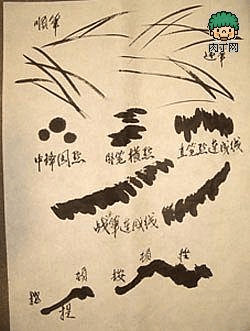 肉丁网
顺笔
逆笔
中锋圆点
卧笔横点
直笔点连成线
战笔连成线
顿 挫
按
提